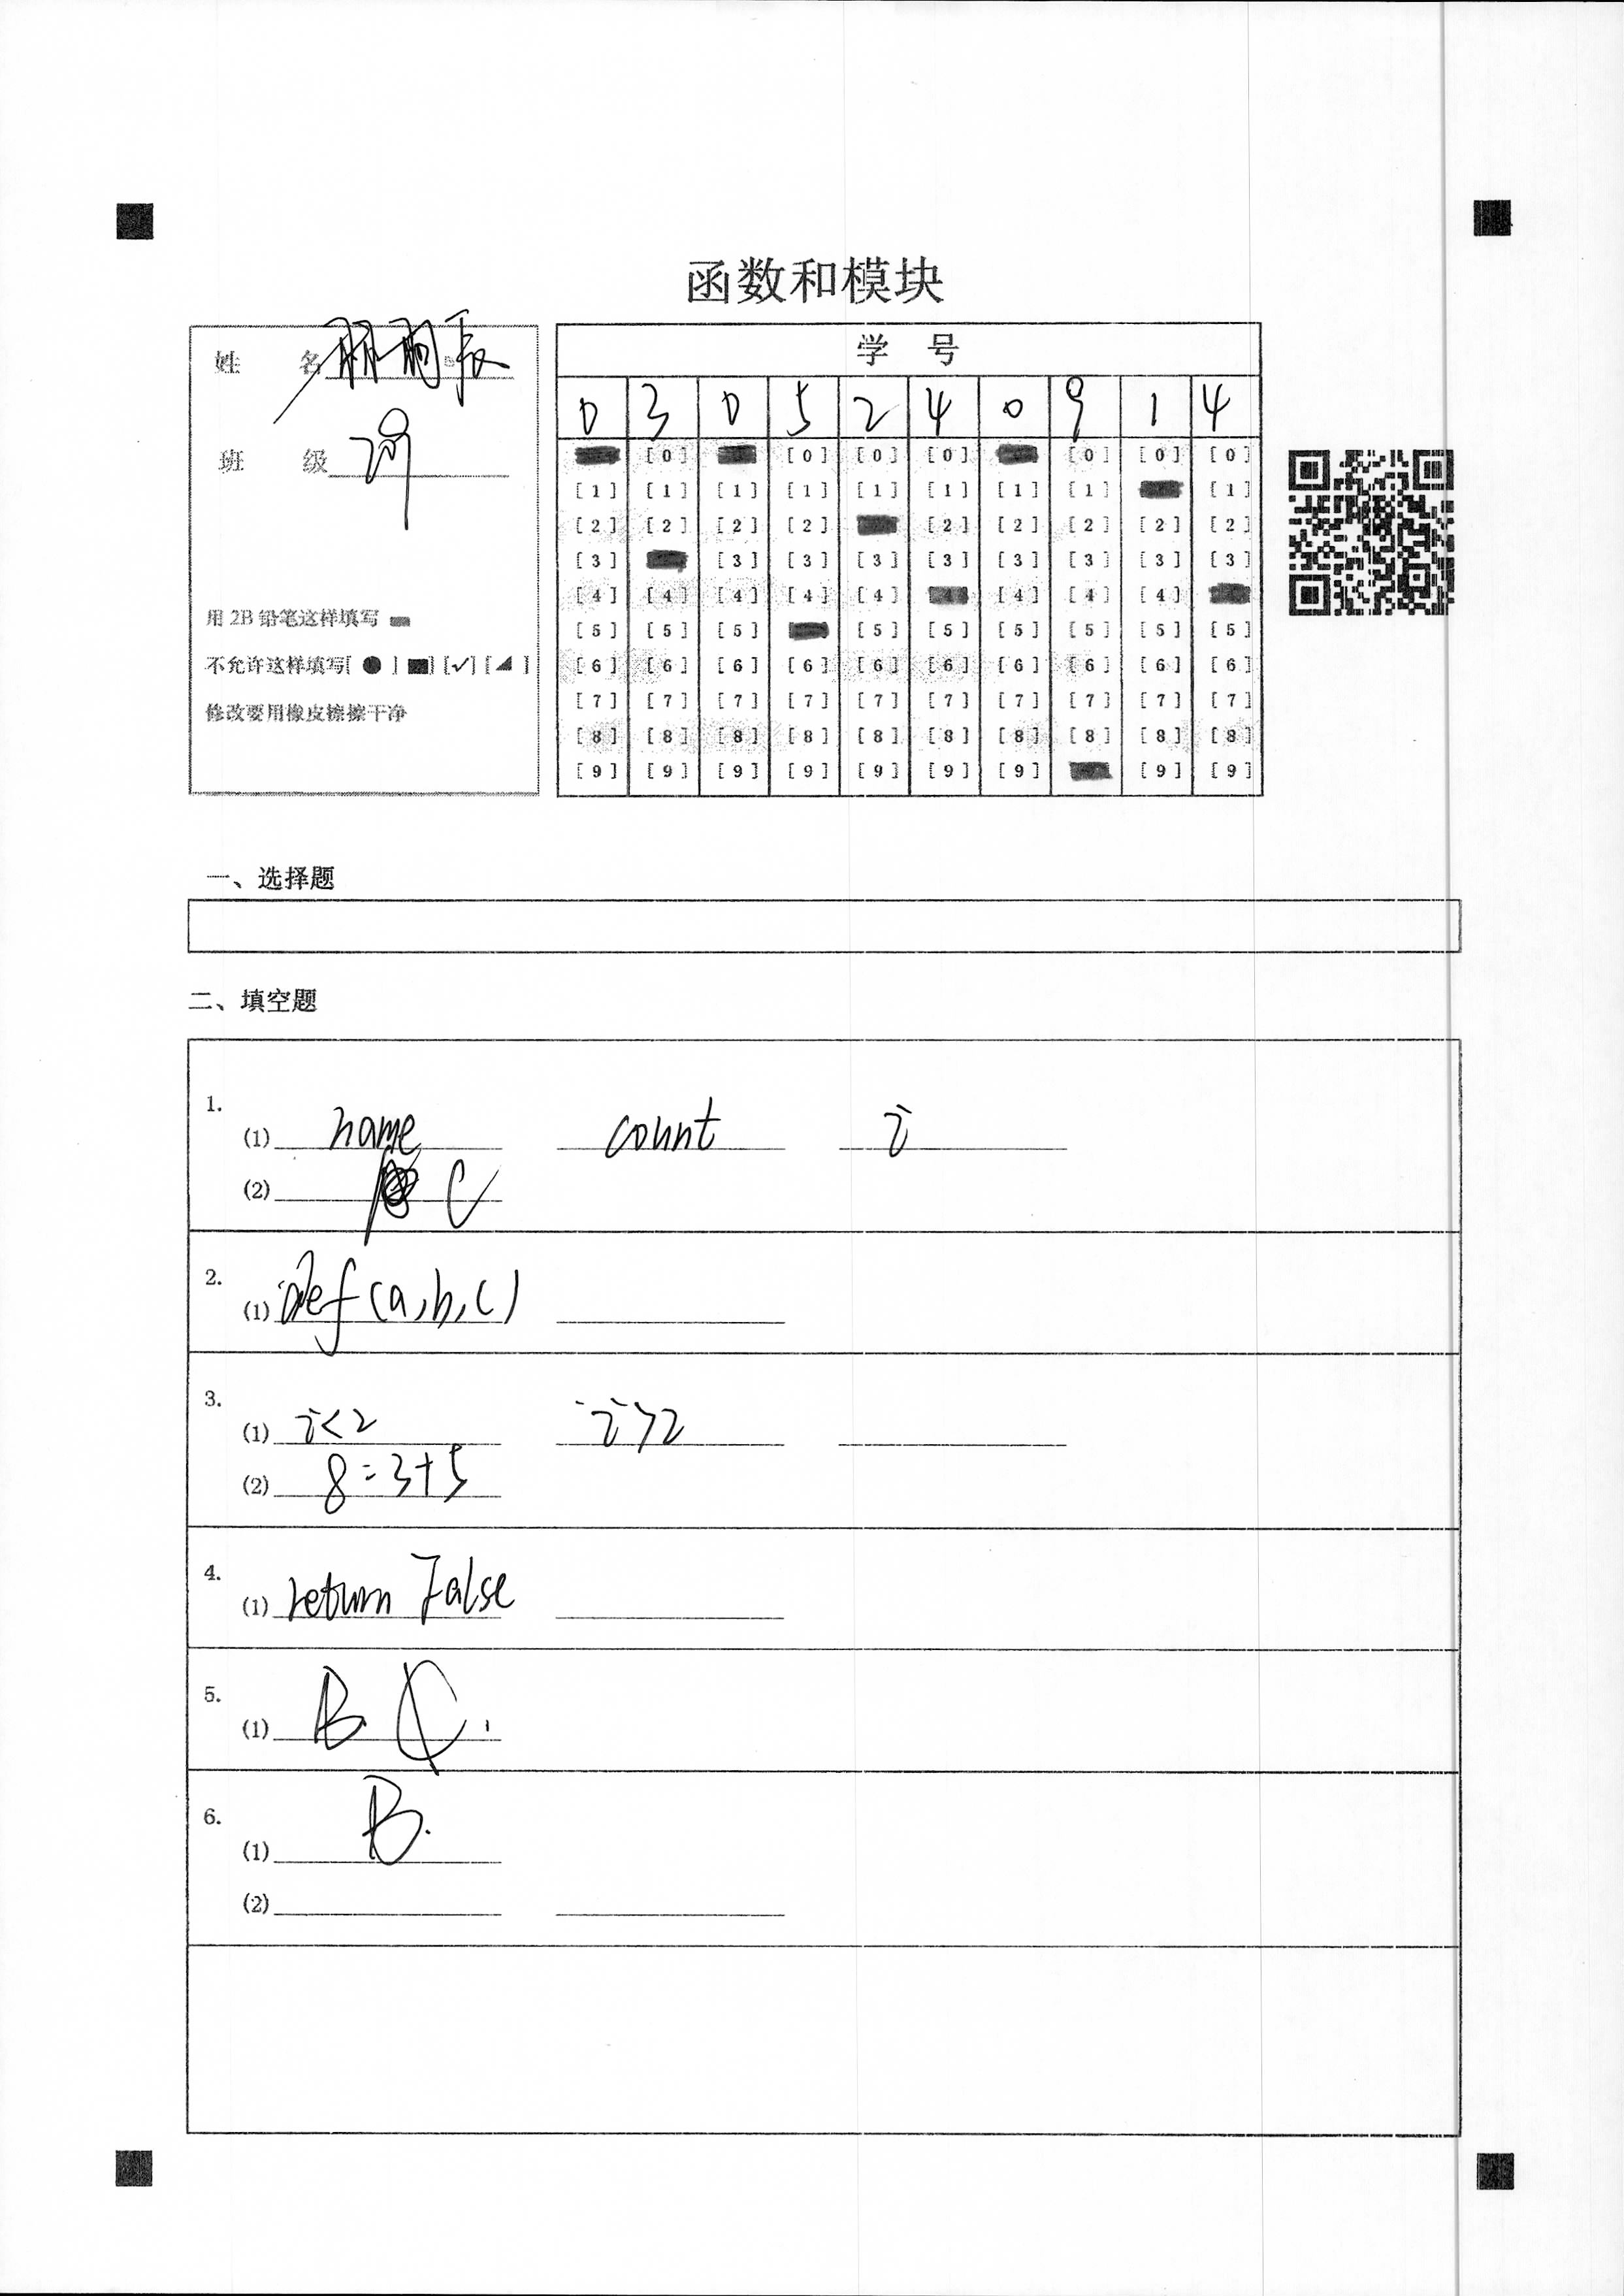 函数和模块
姓 名
班 级
用 2B 铅笔这样填写
不允许这样填写[ ● ] [■] [✓] [◢ ]
修改要用橡皮擦擦干净
学 号
0 3 0 5 2 4 0 9 1 4
[0] [0] [0] [0] [0] [0]
[1] [1] [1] [1] [1] [1] [1] [1] [1]
[2] [2] [2] [2] [2] [2] [2] [2] [2]
[3] [3] [3] [3] [3] [3] [3] [3] [3]
[4] [4] [4] [4] [4] [4] [4] [4]
[5] [5] [5] [5] [5] [5] [5] [5] [5]
[6] [6] [6] [6] [6] [6] [6] [6] [6] [6]
[7] [7] [7] [7] [7] [7] [7] [7] [7] [7]
[8] [8] [8] [8] [8] [8] [8] [8] [8] [8]
[9] [9] [9] [9] [9] [9] [9] [9] [9]
一、选择题
二、填空题
1.
(1) name count i
(2) C
2.
(1) def (a,b,c)
3.
(1) i<2 i>2
(2) 8=3+5
4.
(1) return False
5.
(1) B C.
6.
(1) B.
(2)